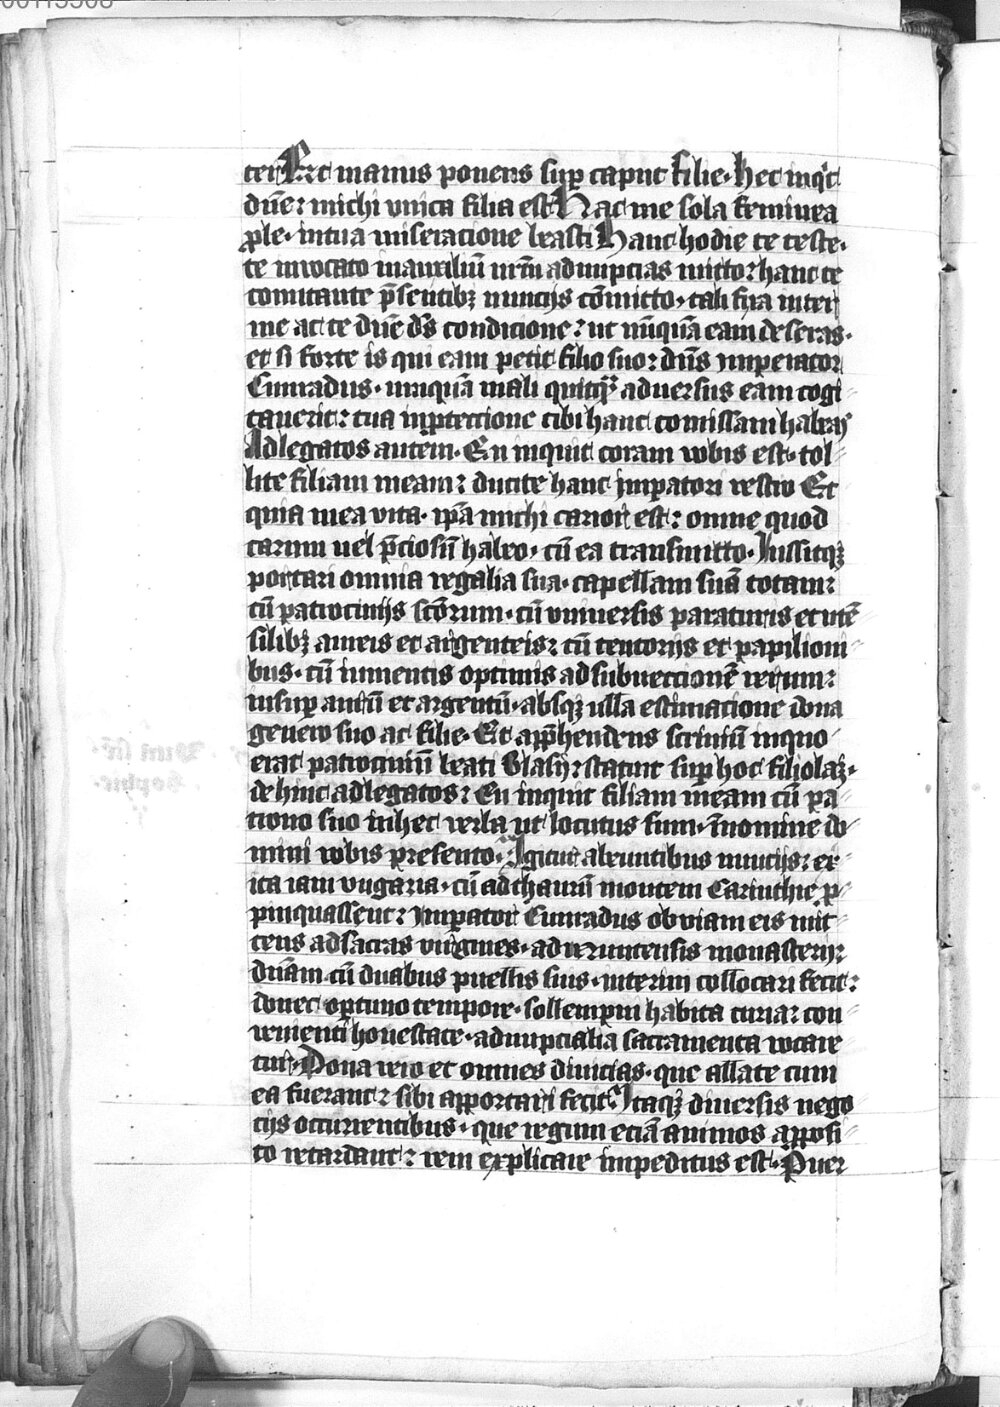 ter Et manus ponens sup̱ caput filie· Hec inq͛t
dn̄e: michi vnica filia est Hac me sola feminea
ꝓle· in tua miseracione beasti Hanc hodie te teste·
te inuocato in auxiliū nr̄m ad nupcias mitto: hanc te
comitante p̄sentibꝫ nuncijs cōmitto· tali fixa inter
me ac te dn̄e ds̄ condicione: ut nūquā eam deseras·
et si forte is qui eam petit filio suo: dn̄s imperator
Cunradus· vnquā mali quitqͣ aduersus eam cogi
tauerit: tua in ꝓtectione tibi hanc comissam habeas
Ad legatos autem· En inquit coram vobis est· tol
lite filiam meam: ducite hanc imꝑatori vestro Et
quia mea vita· ip̄a michi carior est: omne quod
carum uel p̄ciosū habeo· cū ea transmitto· Iussitqꝫ
portari omnia regalia sua· capellam suā totam:
cū patrocinijs scōrum· cū vniuersis paraturis et utē
silibꝫ aureis et argenteis: cū tentorijs et papilioni
bus· cū iumentis optimis ad subuectionē rerum:
insuꝑ aurū et argentū· absqꝫ ulla estimacione dona
genero suo ac filie· Et app̄hendens scriniū in quo
erat patrociniū beati Blasij: statuit suꝑ hoc filiolaꝫ·
dehinc ad legatos: En inquit filiam meam cū pa
trono suo in hec verba ut locutus sum· ī nomine do
mini vobis presento· Igitur abeuntibus nuncijs: ex
ita iam vngaria· cū ad thaurū montem Carinthie ꝓ
pinquassent: Imꝑator Cunradus obuiam eis mit
tens ad sacras virgines· ad veruntensis monasterij:
dn̄am cū duabus puellis suis· interim collocari fecit:
donec optimo tempore· sollempni habita curia: con
uenienti honestate· ad nupcialia sacramenta vocare
tur· Dona vero et omnes diuicias· que allate cum
ea fuerant: sibi apportari fecit· Itaqꝫ diuersis nego
cijs occurrentibus· que regum eciā animos apposi
to retardant: rem explicare impeditus est· Puer